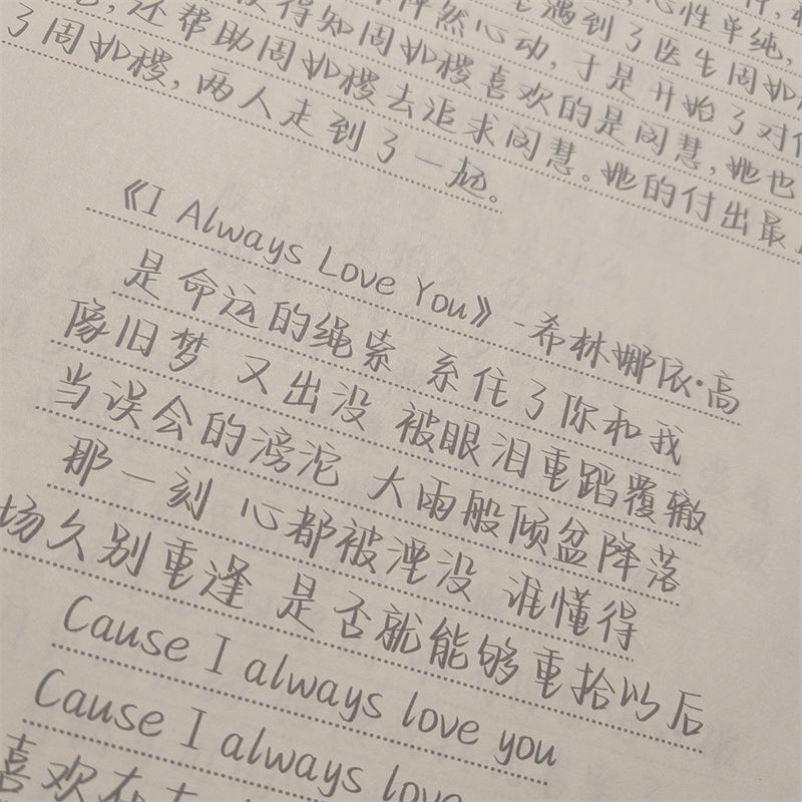 遇到了医生周如
心性单纯,
怦然心动,于是开始了对
得知周如稷喜欢的是闵慧,她也
还帮助周如稷去追求闵慧。她的付出最
了周如稷,两人走到了一起。
《I Always Love You》-希林娜依·高
是命运的绳索 系住了你和我
像旧梦 又出没 被眼泪重蹈覆辙
当误会的滂沱 大雨般倾盆降落
那一刻 心都被淹没 谁懂得
场久别重逢 是否就能够重拾以后
Cause I always love you
Cause I always love
喜欢在